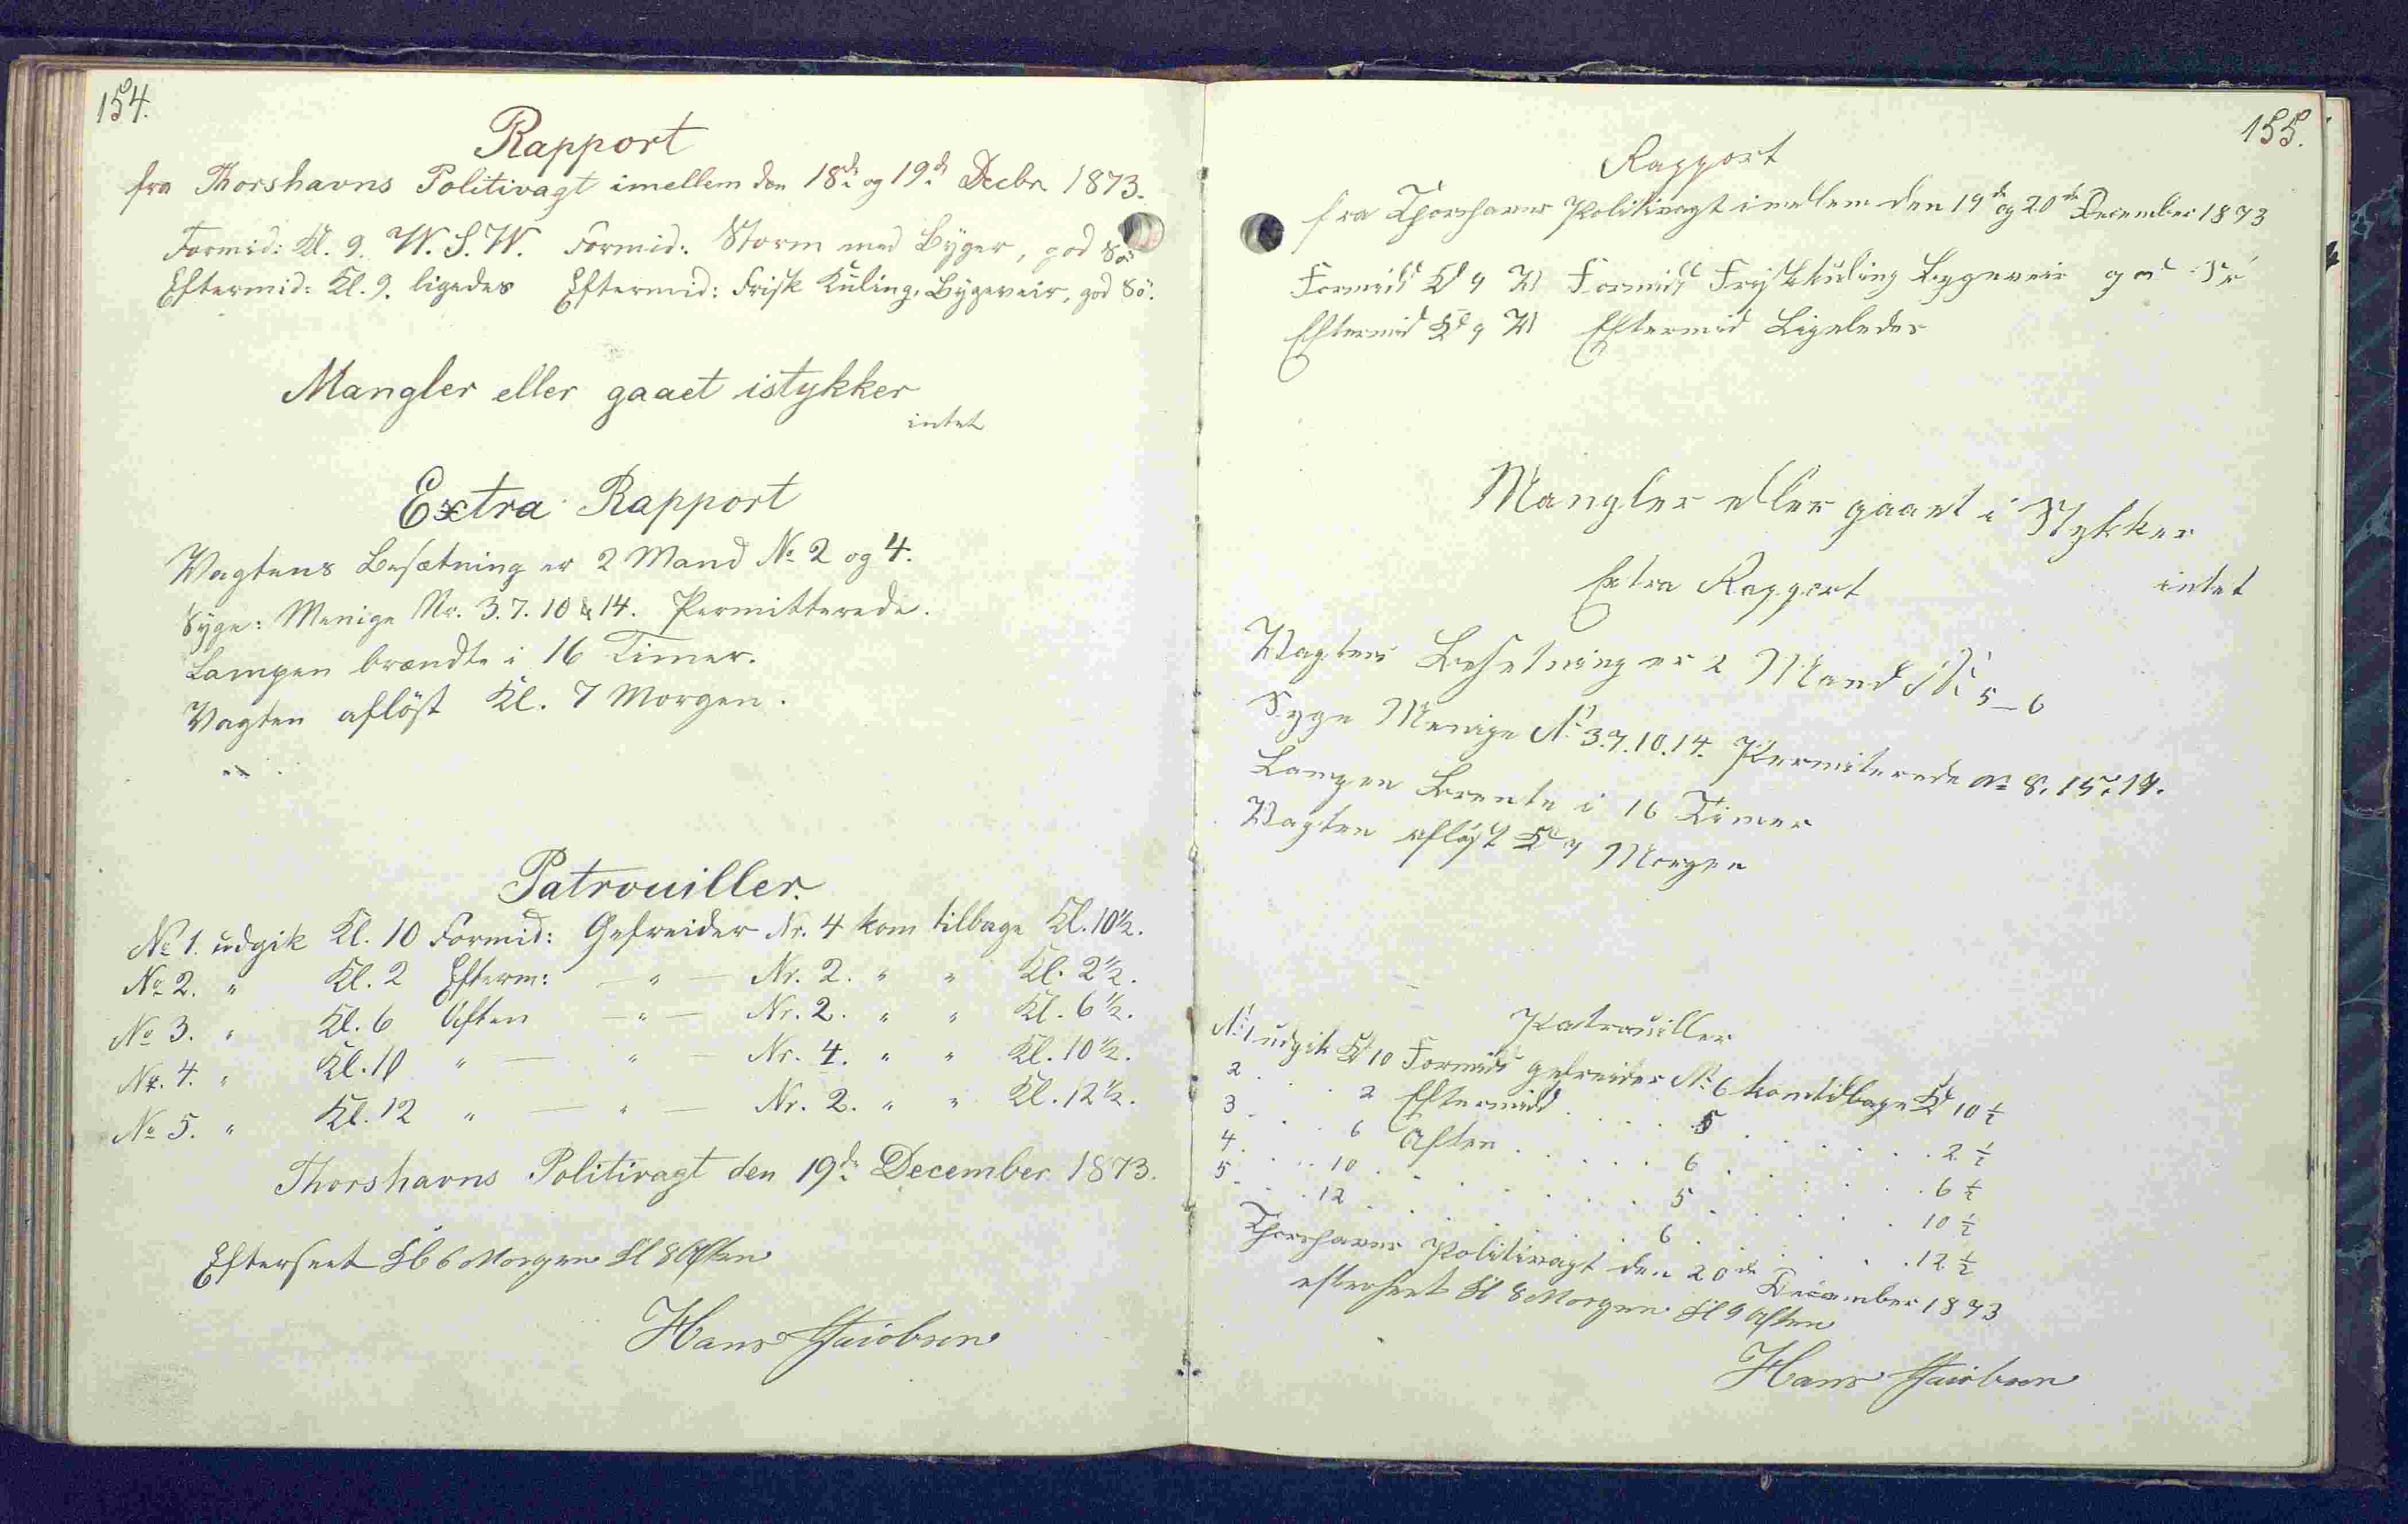 154.
Rapport
fra Thorshavns Politivagt imellem den 18de og 19de Decbr. 1873.
Formid: Kl. 9. W. S. W. Formid: Storm med Byger, god Sö
Eftermid: Kl. 9. ligedes Eftermid: Frisk Kuling, Bygeveir, god Sö.
Mangler eller gaaet istykker
intet
Extra Rapport
Vagtens Besætning er 2 Mand No 2 og 4.
Syge: Menige Nr. 3. 7. 10 & 14. Permitterede.
Lampen brændte i 16 Timer.
Vagten aflöst Kl. 7 Morgen.
Patrouiller.
No 1. udgik Kl. 10 Formid: Gefreider Nr. 4 kom tilbage Kl. 10½.
No 2. " Kl. 2 Efterm: — " — Nr. 2. " " Kl. 2½.
No 3. " Kl. 6 Aften — " — Nr. 2. " " Kl. 6½.
Nr. 4. " Kl. 10 " — " — Nr. 4. " " Kl. 10½.
No 5. " Kl. 12 " — " — Nr. 2. " " Kl. 12½.
Thorshavns Politivagt den 19de December 1873.
Efterseet Kl 6 Morgen Kl 8 Aften
Hans Jacobsen
155.
Rapport
fra Thorshavns Politivagt imellem den 19de og 20de December 1873
Formidd Kl 9 W Formidd Frisk kuling Bygeveir god Sö
Eftermid Kl 9 W Eftermid Ligeledes
Mangler eller gaaet i Stykker
intet
Extra Rapport
Vagtens Besetning er 2 Mand No 5 — 6
Syge Menige No 3. 7. 10. 14. Permiterede No 8. 15. 17.
Lampen Brente i 16 Timer
Vagten aflöst Kl 7 Morgen
Patrouiller
No 1 udgik Kl 10 Formidd gefreider No 6 kom tilbage Kl 10 ½
2 . . . 2 Eftermidd . . . . 5 . . . . . . 2 ½
3 . . . 6 Aften . . . . . 6 . . . . . . 6 ½
4 . . . 10 . . . . . . . 5 . . . . . . 10 ½
5 . . . 12 . . . . . . . 6 . . . . . . 12 ½
Thorshavns Politivagt den 20de December 1873
efterseet Kl 8 Morgen Kl 9 Aften
Hans Jacobsen